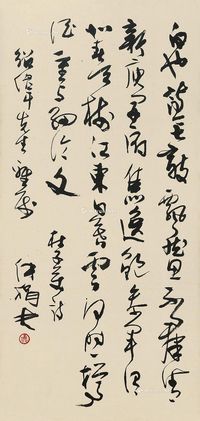 白也詩無敵飄然思不群清
新庾開府俊逸鮑參軍渭
北春天樹江東日暮雲何時一樽
酒重與細論文 杜子美詩
先生